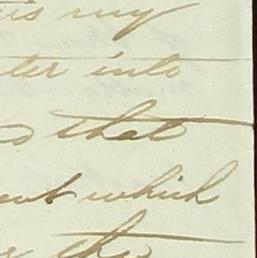 is my
ter into
that
which
the